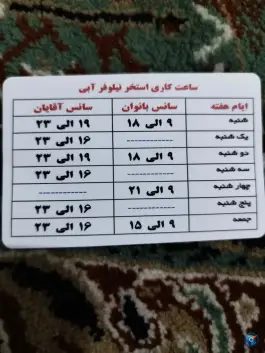 ساعت کاری استخر نیلوفر آبی
ایام هفته سانس بانوان سانس آقایان
شنبه ۹ الی ۱۸ ۱۹ الی ۲۳
یک شنبه ------------ ۱۶ الی ۲۳
دو شنبه ۹ الی ۱۸ ۱۹ الی ۲۳
سه شنبه ------------ ۱۶ الی ۲۳
چهار شنبه ۹ الی ۲۱ ------------
پنج شنبه ------------ ۱۶ الی ۲۳
جمعه ۹ الی ۱۵ ۱۶ الی ۲۳